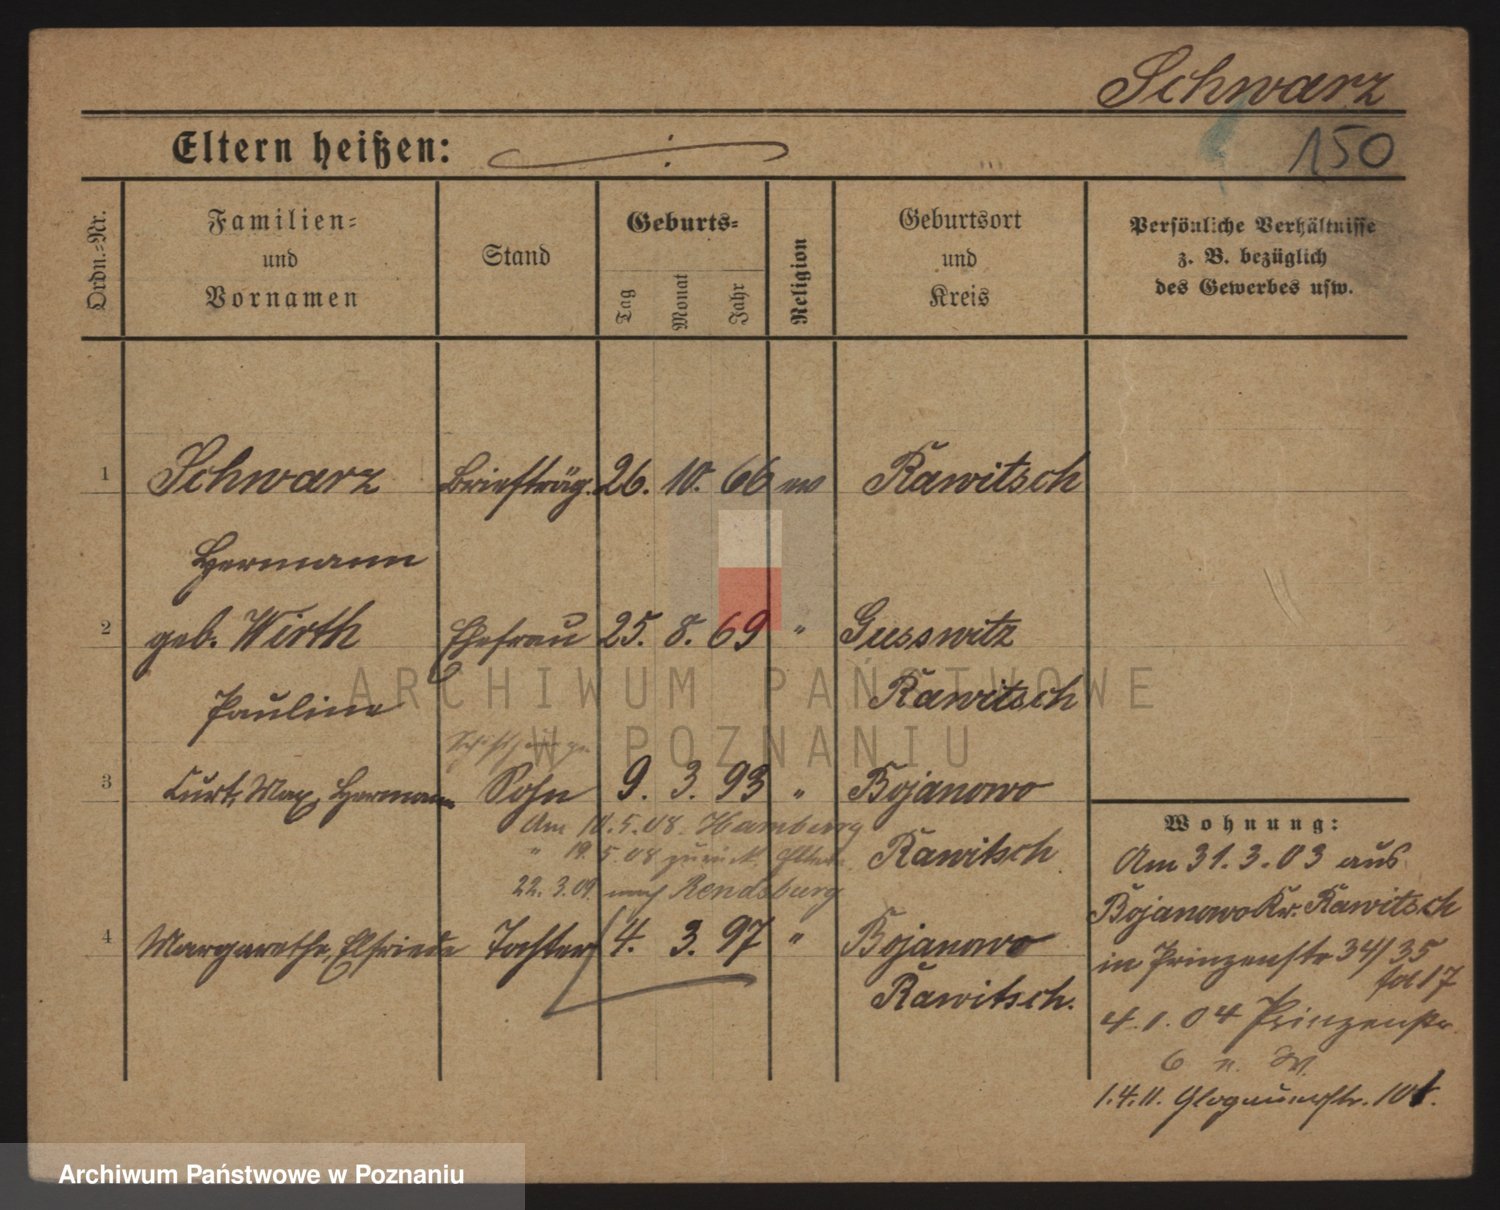 Schwarz
Eltern heißen: ./.
150
Ordn.-Nr.
Familien-
und
Vornamen
Stand
Geburts-
Tag
Monat
Jahr
Religion
Geburtsort
und
Kreis
Persönliche Verhältnisse
z. B. bezüglich
des Gewerbes usw.
1 Schwarz Briefträg. 26. 10. 66 ev Rawitsch
Hermann
2 geb. Wirth Ehefrau 25. 8. 69 " Gusswitz
Pauline Rawitsch
3 Curt, Max, Hermann Sohn 9. 3. 93 " Bojanowo
Am 10.5.08 Hamburg
" 19.5.08 zurück Eltern Rawitsch
22.3.09 nach Rendsburg
4 Margarethe, Elfriede Tochter 4. 3. 97 " Bojanowo
Rawitsch.
Wohnung:
Am 31.3.03 aus
Bojanowo Kr. Rawitsch
in Prinzenstr 34/35
fol 17
4.1.04 Prinzenstr.
6
1.4.11. Glogauerstr. 101.
ARCHIWUM PAŃSTWOWE
W POZNANIU
Archiwum Państwowe w Poznaniu